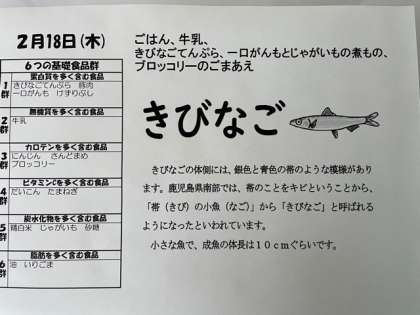 2月18日(木)
ごはん、牛乳、
きびなごてんぷら、一口がんもとじゃがいもの煮もの、
ブロッコリーのごまあえ
6つの基礎食品群
蛋白質を多く含む食品
1群
きびなごてんぷら 豚肉
一口がんも けずりぶし
無機質を多く含む食品
2群
牛乳
カロテンを多く含む食品
3群
にんじん さんどまめ
ブロッコリー
ビタミンCを多く含む食品
4群
だいこん たまねぎ
炭水化物を多く含む食品
5群
精白米 じゃがいも 砂糖
脂肪を多く含む食品
6群
油 いりごま
きびなご
きびなごの体側には、銀色と青色の帯のような模様があり
ます。鹿児島県南部では、帯のことをキビということから、
「帯(きび)の小魚(なご)」から「きびなご」と呼ばれる
ようになったといわれています。
小さな魚で、成魚の体長は10cmぐらいです。